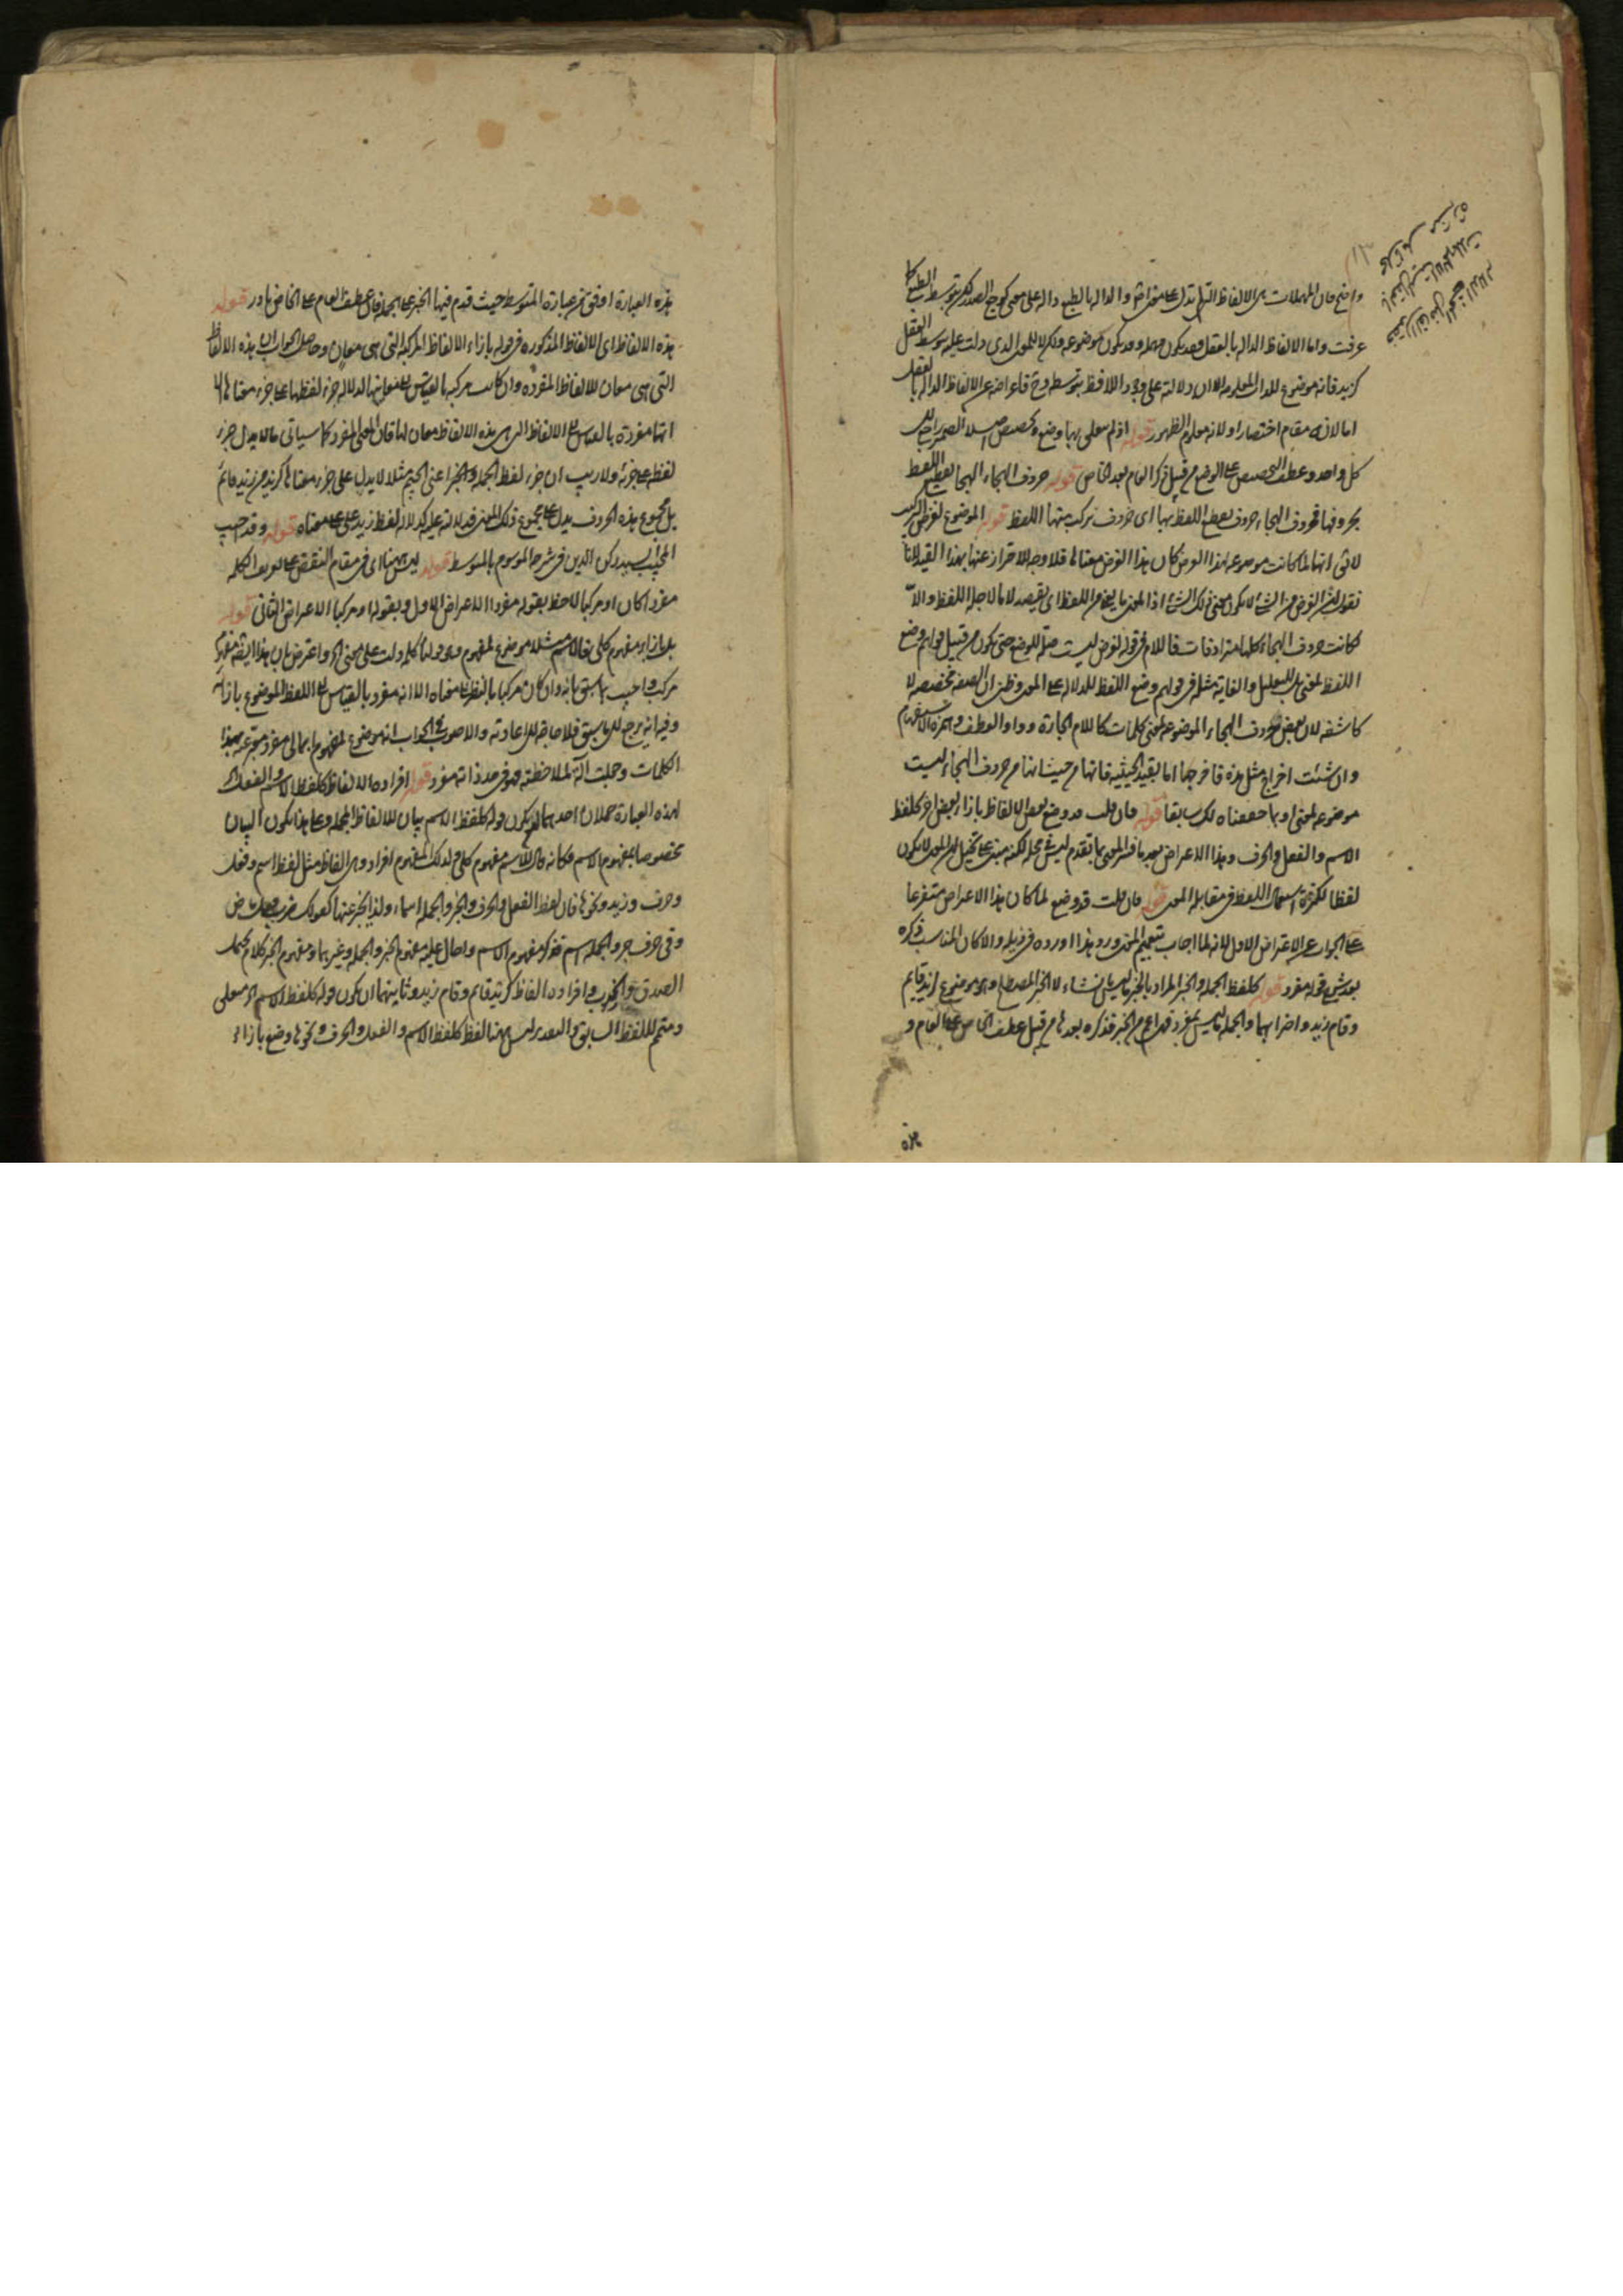 واضح فان المهملات هى الالفاظ التى لم تدل على معنى والدال بالطبع دال على معنى كوجع الصدر لكن بتوسط الطبع كما
عرفت واما الالفاظ الداله بالعقل فقد يكون مهمله وقد يكون موضوعه ولكن لا للمعنى الذى دلت عليه بتوسط العقل
كزيد فانه موضوع للذات المعلومه الا ان دلالته على وجود اللافظ بتوسطه الالفاظ الداله بالعقل
اما لان مقام اختصار او لانه معلوم الظهور قوله اذ لم يتعلق بها وضع وتخصيص
كل واحد وعطف التخصيص على الوضع من قبيل ذكر العام بعد الخاص قوله حروف الهجاء الهجاء تقطيع اللفظ
بحروفها فحروف الهجاء حروف تقطيع اللفظ بها اى حروف تركب منها اللفظ قوله الموضوع لغرض التركيب
انها لما كانت موضوعه لهذا الغرض كان هذا الغرض معناها فلا وجه للاحتراز عنها بهذا القيد لانا
نقول الغرض من الشئ لا يكون معنى ذلك الشئ اذ المعنى ما يفهم من اللفظ اى يقصد لا ما لاجله اللفظ والا
كانت حروف الهجاء كلها مترادفات فاللام فى قوله لغرض ليست صلة للوضع حتى يكون من قبيل قولهم وضع
اللفظ لمعنى بل للتعليل والغاية مثله فى قولهم وضع اللفظ للدلاله على المعنى وظنى ان الصفه مخصصه لا
كاشفه لان بعض حروف الهجاء الموضوعه لمعنى كلمات كاللام الجارة وواو العطف وهمزة الاستفهام
وان شئت اخراج مثل هذه فاخرجها اما بقيد الحيثيه فانها من حيث انها من حروف الهجاء ليست
موضوعه لمعنى او بما حققناه لك سابقا قوله فان قلت قد وضع بعض الالفاظ بازاء بعض اخر كلفظ
الاسم والفعل والحرف وهذا الاعتراض بعد ما فسر المعنى بما تقدم ليس محله لكنه مبنى على تخيل ان المعنى لا يكون
لفظا لكثرة استعمال اللفظ فى مقابله المعنى قوله فان قلت قد وضع لما كان هذا الاعتراض متفرعا
على الجواب عن الاعتراض الاول لانه لما اجاب بتعميم المعنى ورد هذا اورده فى ذيله والا كان المناسب ذكره
بعد شرح قوله مفرد قوله كلفظ الجمله والخبر المراد بالخبر ما ليس بانشاء لا الخبر المصطلح وهو موضوع لزيد قايم
وقام زيد واضرابهما والجمله ما ليس بمفرد فهى اعم من الخبر فذكره بعدها من قبيل عطف الخاص على العام و
هذه العبارة اوفق من عبارة المتوسط حيث قدم فيها الخبر على الجمله فان عطف العام على الخاص نادر قوله
هذه الالفاظ اى الالفاظ المذكوره فى قوله بازاء الالفاظ المركبه التى هى معان وحاصل الجواب ان هذه الالفاظ
التى هى معان للالفاظ المفرده وان كانت مركبه بالقياس الى معانيها لدلاله جزء لفظها على جزء معناها الا
انها مفردة بالقياس الى الالفاظ التى هذه الالفاظ معان لها فان المعنى المفرد كما سياتى ما لا يدل جزء
لفظه على جزئه ولا ريب ان جزء لفظ الجمله والخبر اعنى الجيم مثلا لا يدل على جزء معناها كزيد من زيد قائم
بل مجموع هذه الحروف يدل على مجموع ذلك المعنى فدلالته عليه كدلاله لفظ زيد على معناه قوله وقد اجيب
المجيب سيد ركن الدين فى شرحه الموسوم بالمتوسط قوله ليس هنا اى فى مقام النقض على تعريف الكلمه
مفردا كان او مركبا لاحظ بقوله مفردا الاعتراض الاول وبقوله او مركبا الاعتراض الثانى قوله
بل بازاء مفهوم كلى فالاسم مثلا موضوع لمفهوم وهو قولنا كلمه دلت على معنى الخ واعترض بان هذا ايضا مفهوم
مركب واجيب بما سبق بانه وان كان مركبا بالنظر الى معناه الا انه مفرد بالقياس الى اللفظ الموضوع بازائه
وفيه انه يرجع الى ما سبق فلا حاجه الى اعادته والاصوب فى الجواب انه موضوع لمفهوم اجمالى مفرد يعبر عنه بهذه
الكلمات وجعلت آلة لملاحظته فهو فى حد ذاته مفرد قوله افراده الالفاظ كلفظ الاسم والفعل الخ
لهذه العبارة محملان احدهما ان يكون قوله كلفظ الاسم بيان للالفاظ المجمله وعلى هذا يكون البيان
مخصوصا بمفهوم الاسم فكانه قال للاسم مفهوم كلى ولذلك المفهوم افراد وهى الفاظ مثل لفظ اسم وفعل
وحرف وزيد ونحوها فان لفظ الفعل والحرف والخبر والجمله اسماء ولذا يخبر عنها كقولك ضرب فعل ماض
وفى حرف جر والجمله اسم فذكر مفهوم الاسم واحال عليه مفهوم الخبر والجمله وغيرهما ومفهوم الخبر كلام يحتمل
الصدق والكذب وافراده الفاظ كزيد قائم وقام زيد وثانيهما ان يكون قوله كلفظ الاسم الخ متعلق
ومتمم للفظ السابق والتقدير ليس هنا لفظ كلفظ الاسم والفعل والحرف ونحوها وضع بازاء